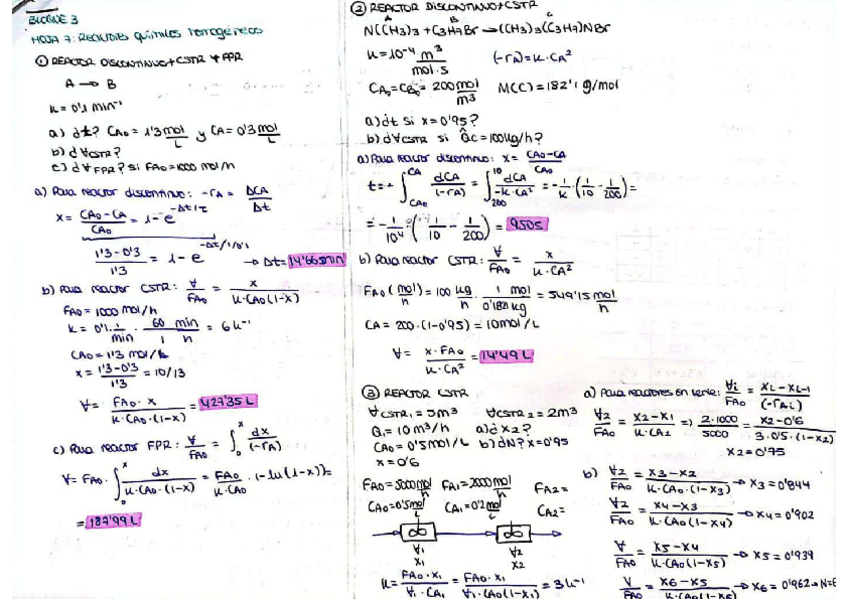 BLOQUE 3
HOJA 7: REACTORES químicos homogéneos
① REACTOR DISCONTINUO + CSTR + FPR
A → B
k = 0'1 min⁻¹
a) dt? CA0 = 1'3 mol/L y CA = 0'3 mol/L
b) d VCSTR?
c) d VFPR? si FA0 = 1000 mol/h
a) Para reactor discontinuo: -rA = ΔCA/Δt
x = (CA0 - CA)/CA0 = 1 - e^(-Δt/τ)
(1'3 - 0'3)/1'3 = 1 - e^(-Δt/1/0'1) → Δt = 14'66 min
b) Para reactor CSTR: V/FA0 = x/(k·CA0(1-x))
FA0 = 1000 mol/h
k = 0'1 · 1/min · 60 min/1 h = 6 h⁻¹
CA0 = 1'3 mol/L
x = (1'3 - 0'3)/1'3 = 10/13
V = FA0 · x/(k·CA0·(1-x)) = 427'35 L
c) Para reactor FPR: V/FA0 = ∫₀ˣ dx/(-rA)
V = FA0 · ∫₀ˣ dx/(k·CA0·(1-x)) = FA0/(k·CA0) · (-ln(1-x)) =
= 187'99 L
② REACTOR DISCONTINUO + CSTR
A B C
N(CH3)3 + C3H7Br → (CH3)3(C3H7)NBr
k = 10⁻⁴ m³/(mol·s) (-rA) = k·CA²
CA0 = CB0 = 200 mol/m³ M(C) = 182'1 g/mol
a) dt si x = 0'95?
b) d VCSTR si Qc = 100 kg/h?
a) Para reactor discontinuo: x = (CA0 - CA)/CA0
t = - ∫CA0^CA dCA/(-rA) = ∫200^10 dCA/(-k·CA²) = -1/k · (1/10 - 1/200) =
= -1/10⁴ · (1/10 - 1/200) = 950s
b) Para reactor CSTR: V/FA0 = x/(k·CA²)
FA0 (mol/h) = 100 kg/h · 1 mol/0'182 kg = 549'15 mol/h
CA = 200·(1 - 0'95) = 10 mol/L
V = x·FA0/(k·CA²) = 14'49 L
③ REACTOR CSTR
VCSTR1 = 5m³ VCSTR2 = 2m³
Q1 = 10 m³/h a) d x2?
CA0 = 0'5 mol/L b) dN? x = 0'95
x = 0'6
FA0 = 5000 mol/h FA1 = 2000 mol/h FA2 =
CA0 = 0'5 mol/L CA1 = 0'2 mol/L CA2 =
V1 V2
x1 x2
k = FA0·x1/(V1·CA1) = FA0·x1/(V1·CA0(1-x1)) = 3 h⁻¹
a) Para reactores en serie: Vi/FA0 = (xi - xi-1)/(-rAi)
V2/FA0 = (x2 - x1)/(k·CA2) ⇒ 2·1000/5000 = (x2 - 0'6)/(3·0'5·(1-x2))
x2 = 0'75
b) V2/FA0 = (x3 - x2)/(k·CA0·(1-x3)) → x3 = 0'844
V2/FA0 = (x4 - x3)/(k·CA0(1-x4)) → x4 = 0'902
V/FA0 = (x5 - x4)/(k·CA0(1-x5)) → x5 = 0'939
V/FA0 = (x6 - x5)/(k·CA0(1-x6)) → x6 = 0'962 → N=6